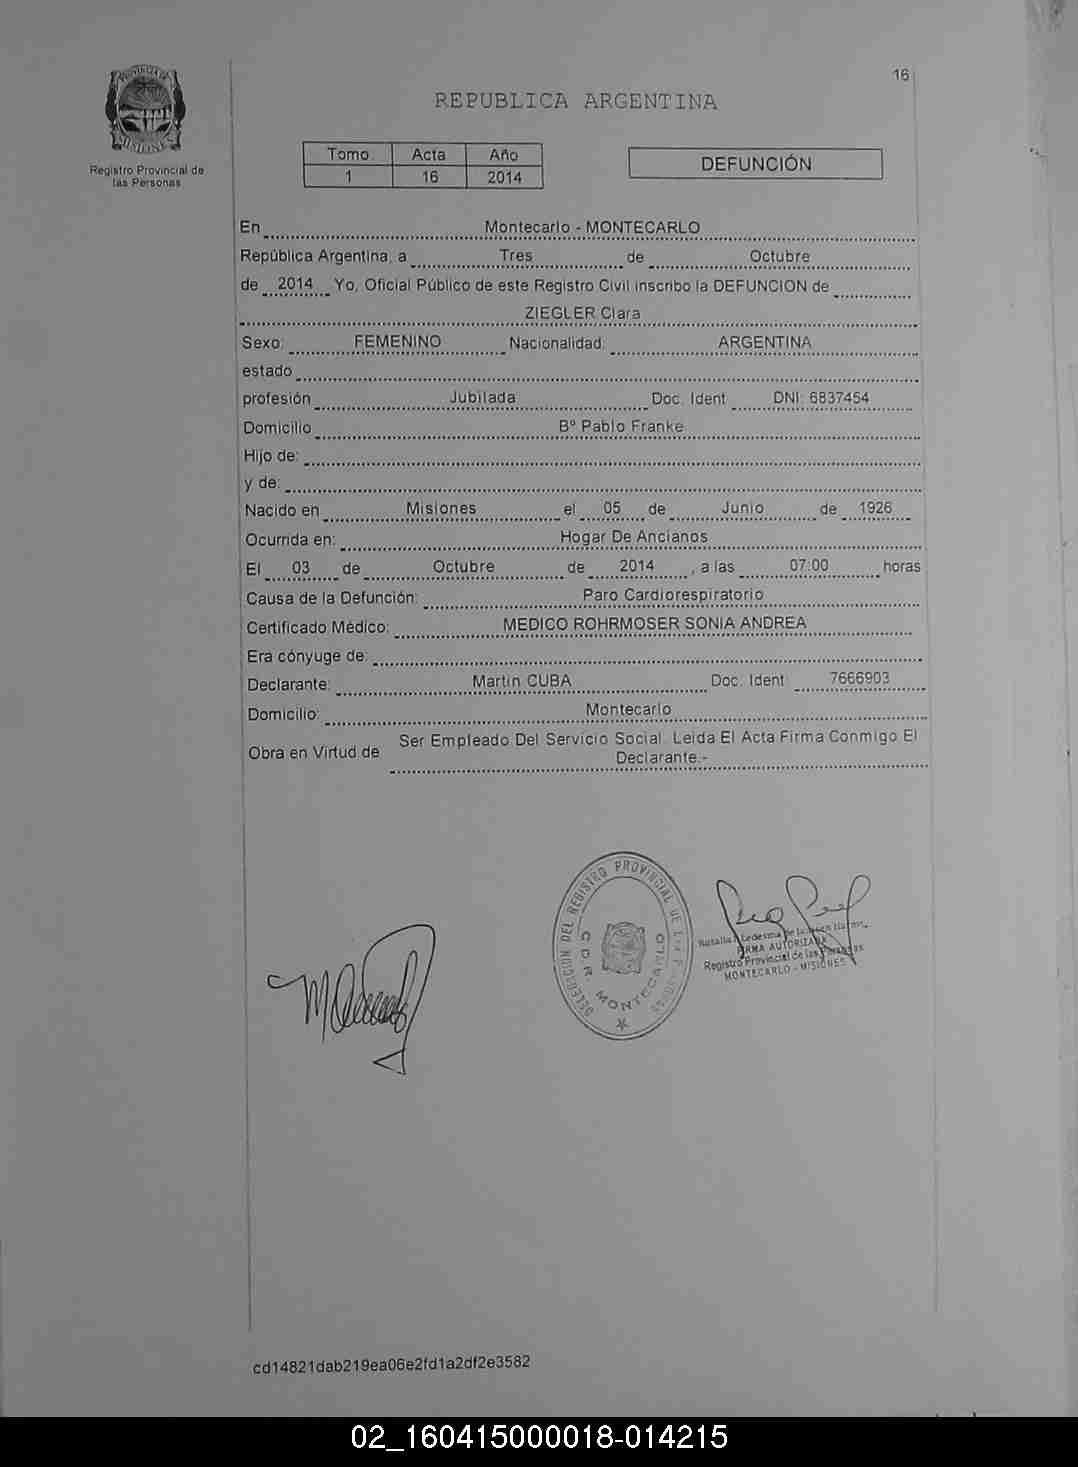 16
REPUBLICA ARGENTINA
PROVINCIA DE
MISIONES
Registro Provincial de
las Personas
Tomo Acta Año
1 16 2014
DEFUNCIÓN
En Montecarlo - MONTECARLO
República Argentina, a Tres de Octubre
de 2014 Yo, Oficial Público de este Registro Civil inscribo la DEFUNCION de
ZIEGLER Clara
Sexo: FEMENINO Nacionalidad: ARGENTINA
estado
profesión Jubilada Doc. Ident DNI: 6837454
Domicilio Bº Pablo Franke
Hijo de:
y de:
Nacido en Misiones el 05 de Junio de 1926
Ocurrida en: Hogar De Ancianos
El 03 de Octubre de 2014, a las 07:00 horas
Causa de la Defunción: Paro Cardiorespiratorio
Certificado Médico: MEDICO ROHRMOSER SONIA ANDREA
Era cónyuge de:
Declarante: Martin CUBA Doc. Ident 7666903
Domicilio: Montecarlo
Obra en Virtud de Ser Empleado Del Servicio Social. Leida El Acta Firma Conmigo El
Declarante.-
DELEGACION DEL REGISTRO PROVINCIAL DE LAS PERSONAS
MONTECARLO
Ledesma de
FIRMA AUTORIZADA
Registro Provincial de las Personas
MONTECARLO - MISIONES
cd14821dab219ea06e2fd1a2df2e3582
02_160415000018-014215